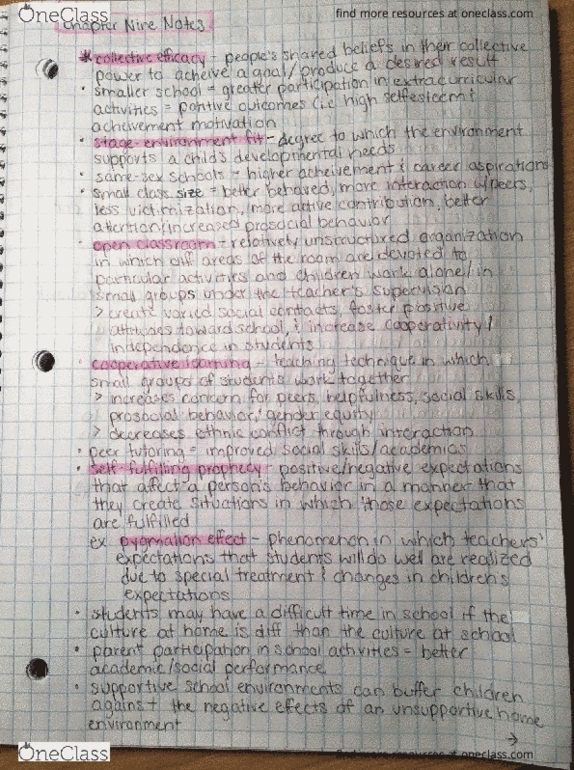 OneClass
find more resources at oneclass.com
Chapter Nine Notes
* collective efficacy - people's shared beliefs in their collective
power to acheive a goal/produce a desired result
• smaller school = greater participation in extracurricular
activities = positive outcomes (i.e high selfesteem &
acheivement motivation
• stage-environment fit - degree to which the environment
supports a child's developmental needs
• same-sex schools = higher acheivement & career aspirations
• small class size = better behaved, more interaction w/peers,
less victimization, more active contribution, better
attention/increased prosocial behavior
• open classroom - relatively unstructured organization
in which diff areas of the room are devoted to
particular activities and children work alone/in
small groups under the teacher's supervision
> create varied social contacts, foster positive
attitudes toward school, & increase cooperativity/
independence in students
• cooperative learning - teaching technique in which
small groups of students work together
> increases concern for peers, helpfulness, social skills,
prosocial behavior, gender equity
> decreases ethnic conflict through interaction
• peer tutoring = improved social skills/academics
• self-fulfilling prophecy - positive/negative expectations
that affect a person's behavior in a manner that
they create situations in which those expectations
are fulfilled
ex pygmalion effect - phenomenon in which teachers'
expectations that students will do well are realized
due to special treatment & changes in children's
expectations
• students may have a difficult time in school if the
culture at home is diff than the culture at school
• parent participation in school activities = better
academic/social performance
• supportive school environments can buffer children
against the negative effects of an unsupportive home
environment
→
OneClass
find more resources at oneclass.com